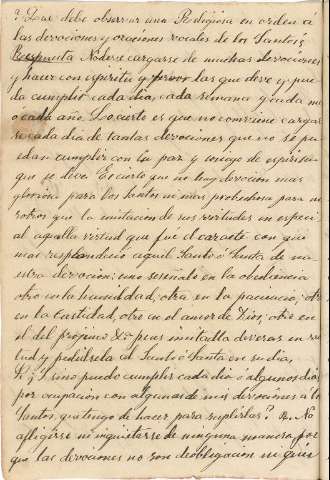 ? Que debe observar una Religiosa en orden á
las devociones y oraciones vocales de los Santos?
Respuesta No debe cargarse de muchas devociones
y hacer con espiritu y fervor las que deve y pue
da cumplir cada dia, cada semana y cada mes
ó cada año. Lo cierto es que no conviene cargar
se cada dia de tantas devociones que no se pu
edan cumplir con la paz y sosiego de espiritu
que se deve. Es cierto que no hay devocion mas
gloriosa para los Santos ni mas probechosa para no
sotros que la imitacion de sus virtudes en especi
al aquella virtud que fué el caracter con que
mas resplandecio aquel Santo ó Santa de nu
estra devocion: uno señalado en la obediencia
otro en la humildad, otra en la paciencia, otro
en la Castidad, otro en el amor de Dios, otro en
el del projimo &a pues imita
tud y pedirsela al Santo ó Santa en su dia,
P. ¿ I sino puedo cumplir cada dia ó algunos dias
por ocupacion con algunas de mis devociones a los
Santos, que tengo de hacer para suplirlas? R. No
afligirse ni inquietarse de ninguna manera, por
que las devociones no son de obligacion ni quie